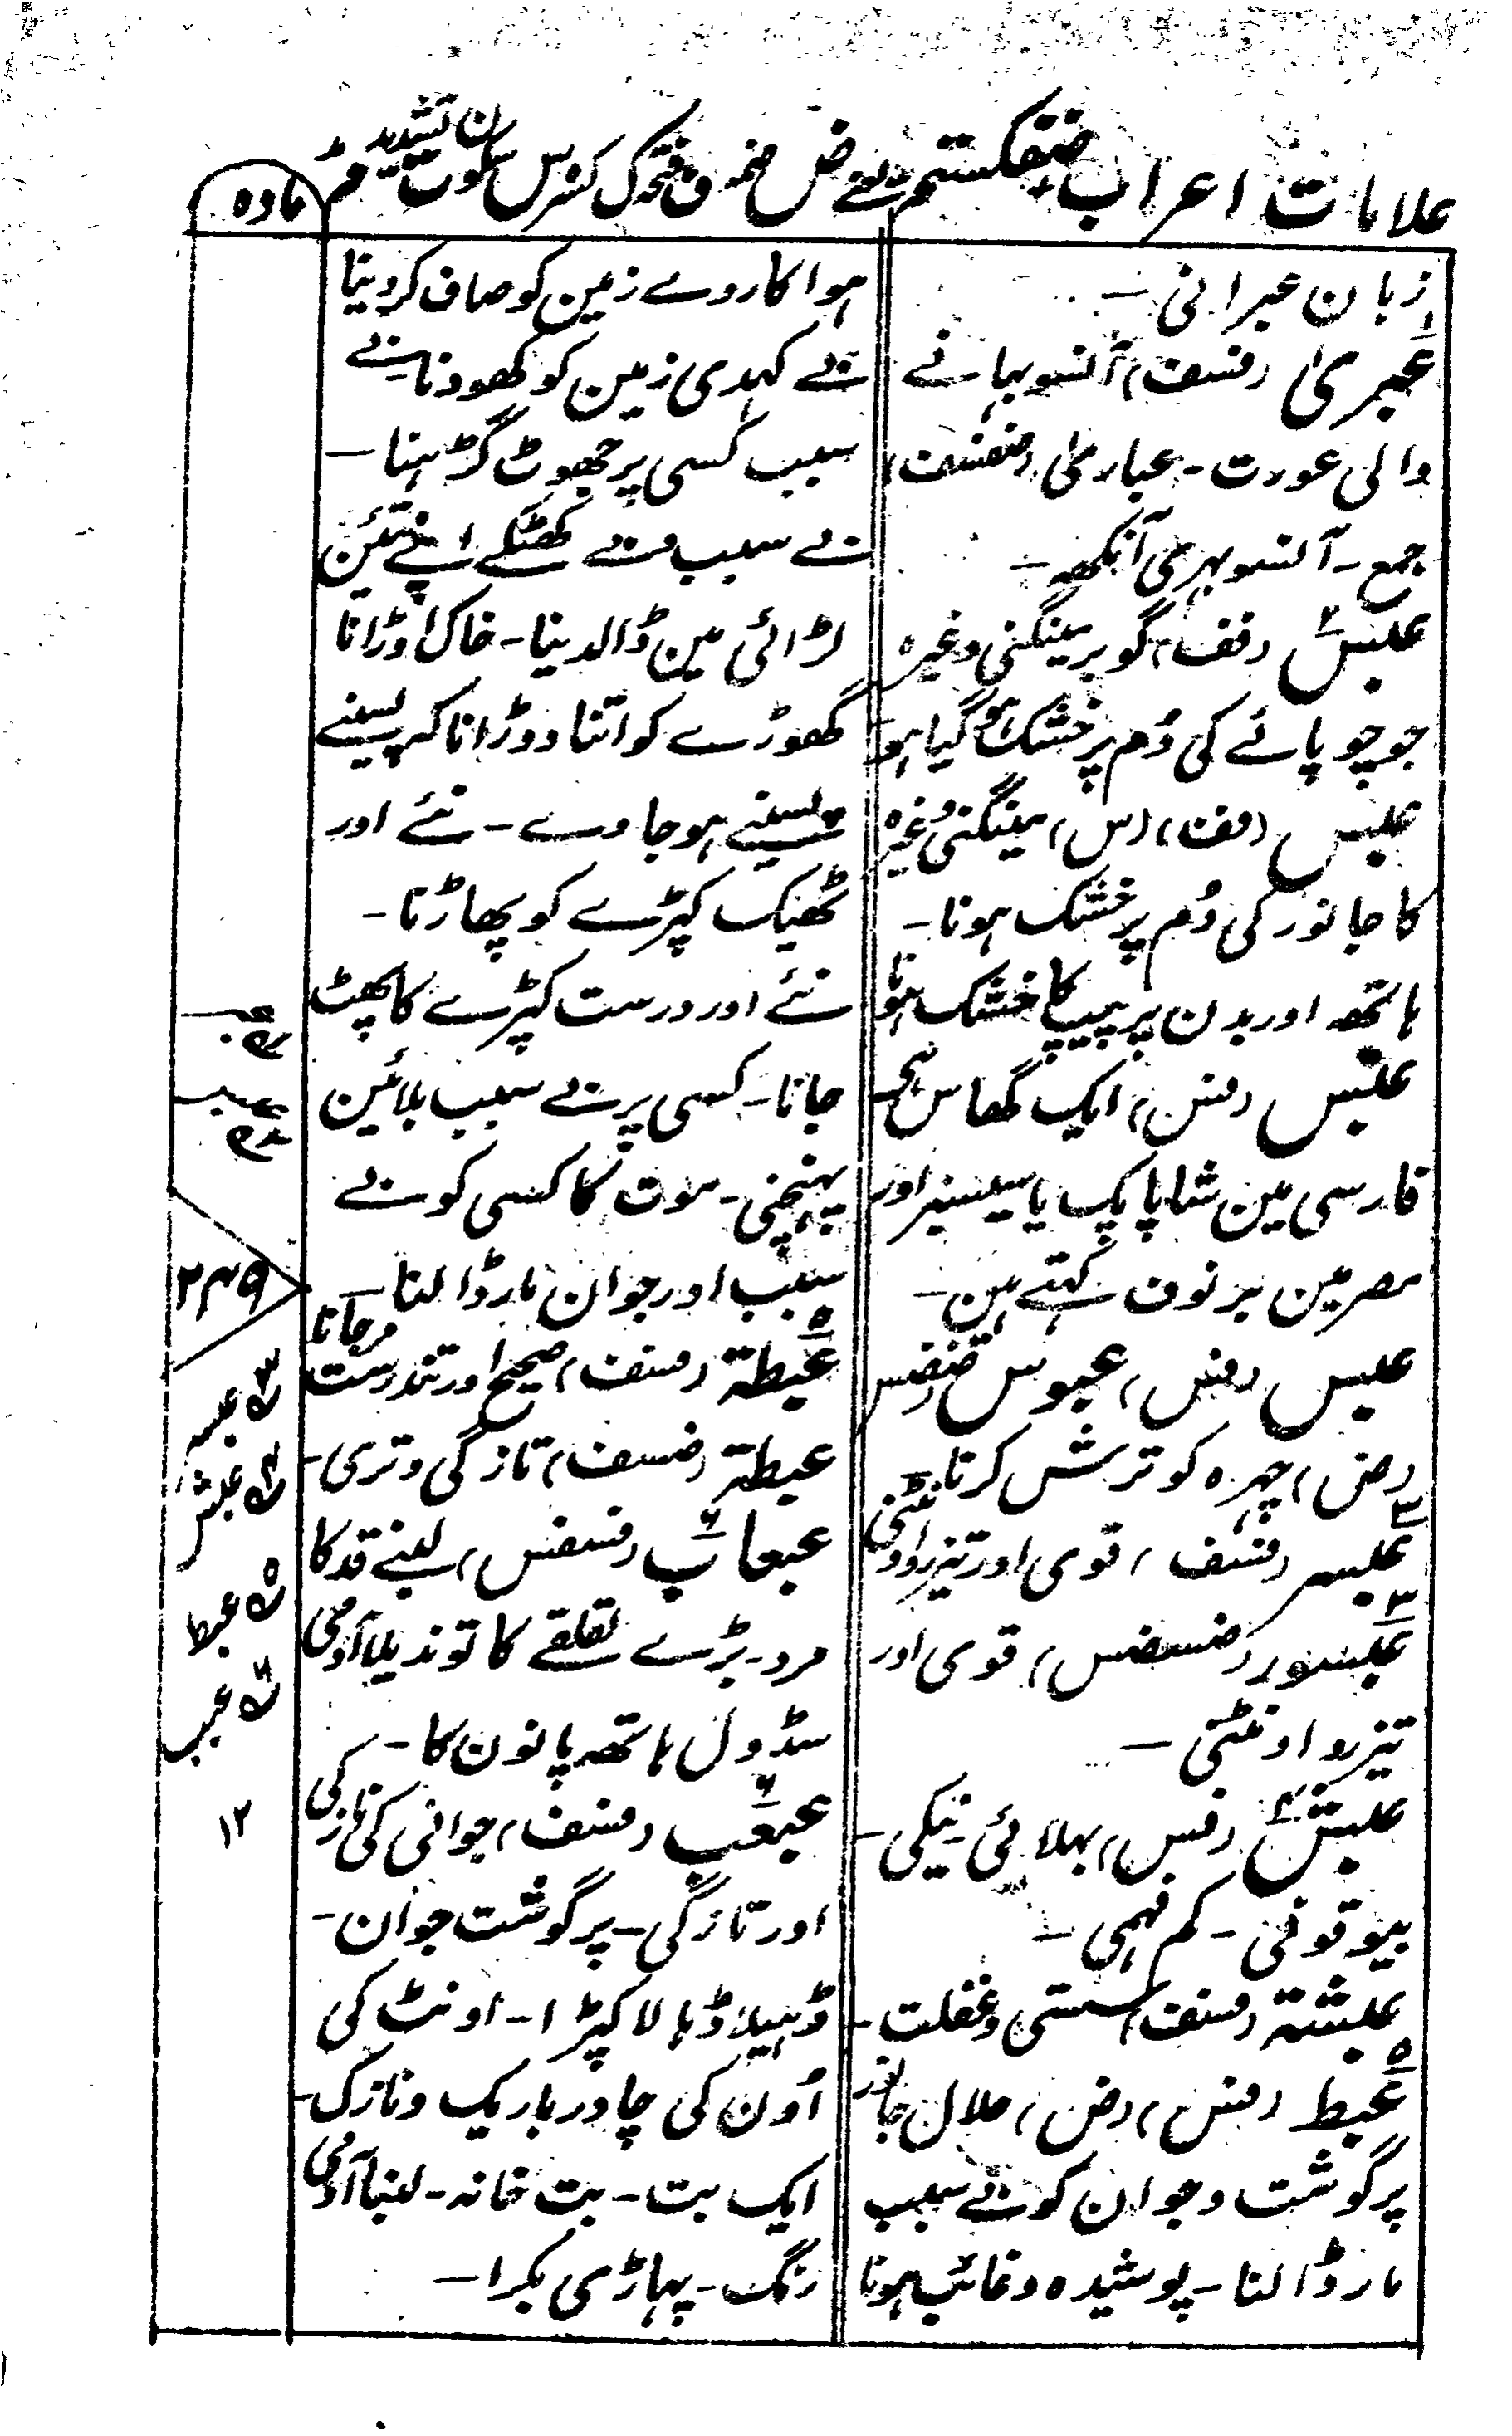 علامات اعراب ضفکستم یعنے ض ضمہ ف فتحہ ک کسرہ س سکون ت تشدید م مد
مادہ
زبان عبرانی ۔
عَبریٰ (فسف) آنسو بہانے
والی عورت ۔ عباریٰ (ضفسف)
جمع ۔ آنسو بہری آنکھہ ۔
عبسٌ (فف) گوبر مینگنی وغیرہ
جو چوپائے کی دُم پر خشک ہو گیا ہو
عبس (فف) (س) مینگنی وغیرہ
کا جانور کی دُم پر خشک ہونا ۔
ہاتھہ اور بدن پر پیپ کا خشک ہونا
عبس (فس) ایک گھاس ہی
فارسی مین شاپاپک یا سیسنبر اور
مصر مین برنوف کہتے ہین ۔
عبس (فس) عبوس (ضضس)
(ض) چہرہ کو ترش کرنا ۔
عبسر (فسف) قوی اور تیزرو اونٹنی
عبسور (ضسضس) قوی اور
تیزرو اونٹنی ۔
عبش (فس) بہلائی ۔ نیکی ۔
بیوقوفی ۔ کم فہمی ۔
عبشۃ (فسف) سستی و غفلت ۔
عَبط (فس) (ض) حلال جانور
پر گوشت و جوان کو بے سبب
مار ڈالنا ۔ پوشیدہ و غائب ہونا
ہوا کا روے زمین کو صاف کر دینا
بے کہدی زمین کو کھودنا ۔ بے
سبب کسی پر جھوٹ گڑہنا ۔
بے سبب و بے کھٹکے اپنے تئین
لڑائی مین ڈالدینا ۔ خاک اوڑانا
گھوڑے کو اتنا دوڑانا کہ پسینے
پسینے ہو جاوے ۔ نئے اور
ٹھیک کپڑے کو پھاڑنا ۔
نئے اور درست کپڑے کا پھٹ
جانا ۔ کسی پر بے سبب بلائین
پہنچنی ۔ موت کا کسی کو بے
سبب اور جوان مار ڈالنا ۔ مرجانا
عَبطۃ (فسف) صحیح اور تندرست
عبطۃ (ضسف) تازگی و تری ۔
عبعاب (فسفس) لنبے قد کا
مرد ۔ بڑے تقلقے کا توندیلا آدمی
سڈول ہاتھہ پانون کا ۔
عبعب (فسف) جوانی کی نازکی
اور تازگی ۔ پر گوشت جوان ۔
ڈہیلا ڈہالا کپڑا ۔ اونٹ کی
اُون کی چادر باریک و نازک ۔
ایک بت ۔ بت خانہ ۔ لنبا آدمی
رنگ ۔ پہاڑی بکرا ۔
۲۴۹
۳ عبسر
۴ عبش
۵ عبط
۶ عبب
۱۲